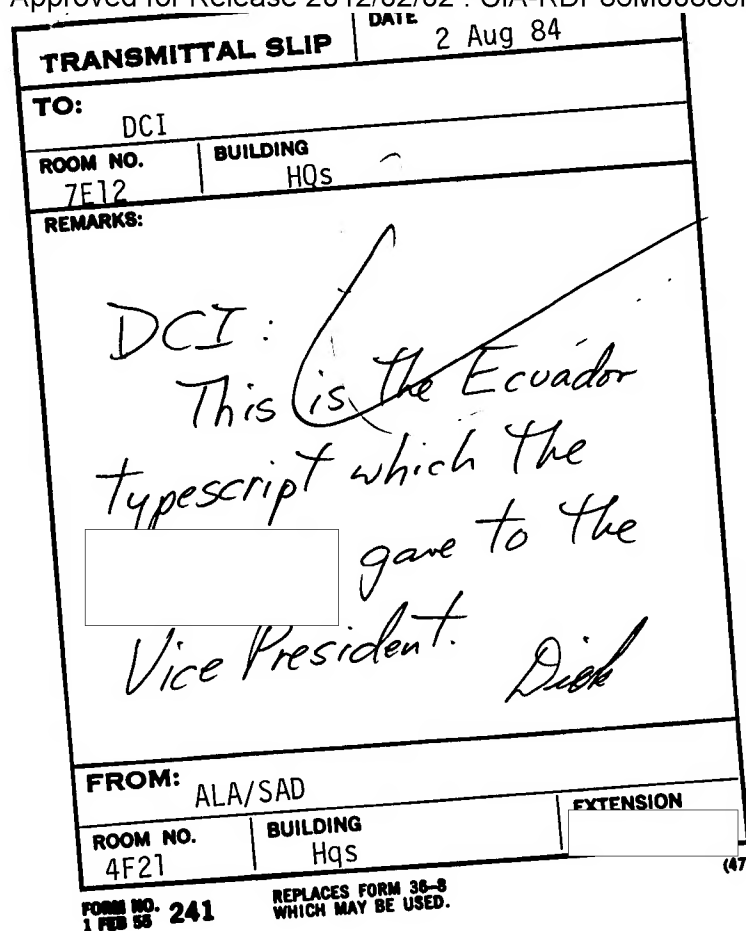 TRANSMITTAL SLIP
DATE
2 Aug 84
TO:
DCI
ROOM NO.
7E12
BUILDING
HQs
REMARKS:
DCI:
This is the Ecuador
typescript which the
gave to the
Vice President.
Dick
FROM:
ALA/SAD
ROOM NO.
4F21
BUILDING
Hqs
EXTENSION
FORM NO.
1 FEB 55 241
REPLACES FORM 36-8
WHICH MAY BE USED.
(47